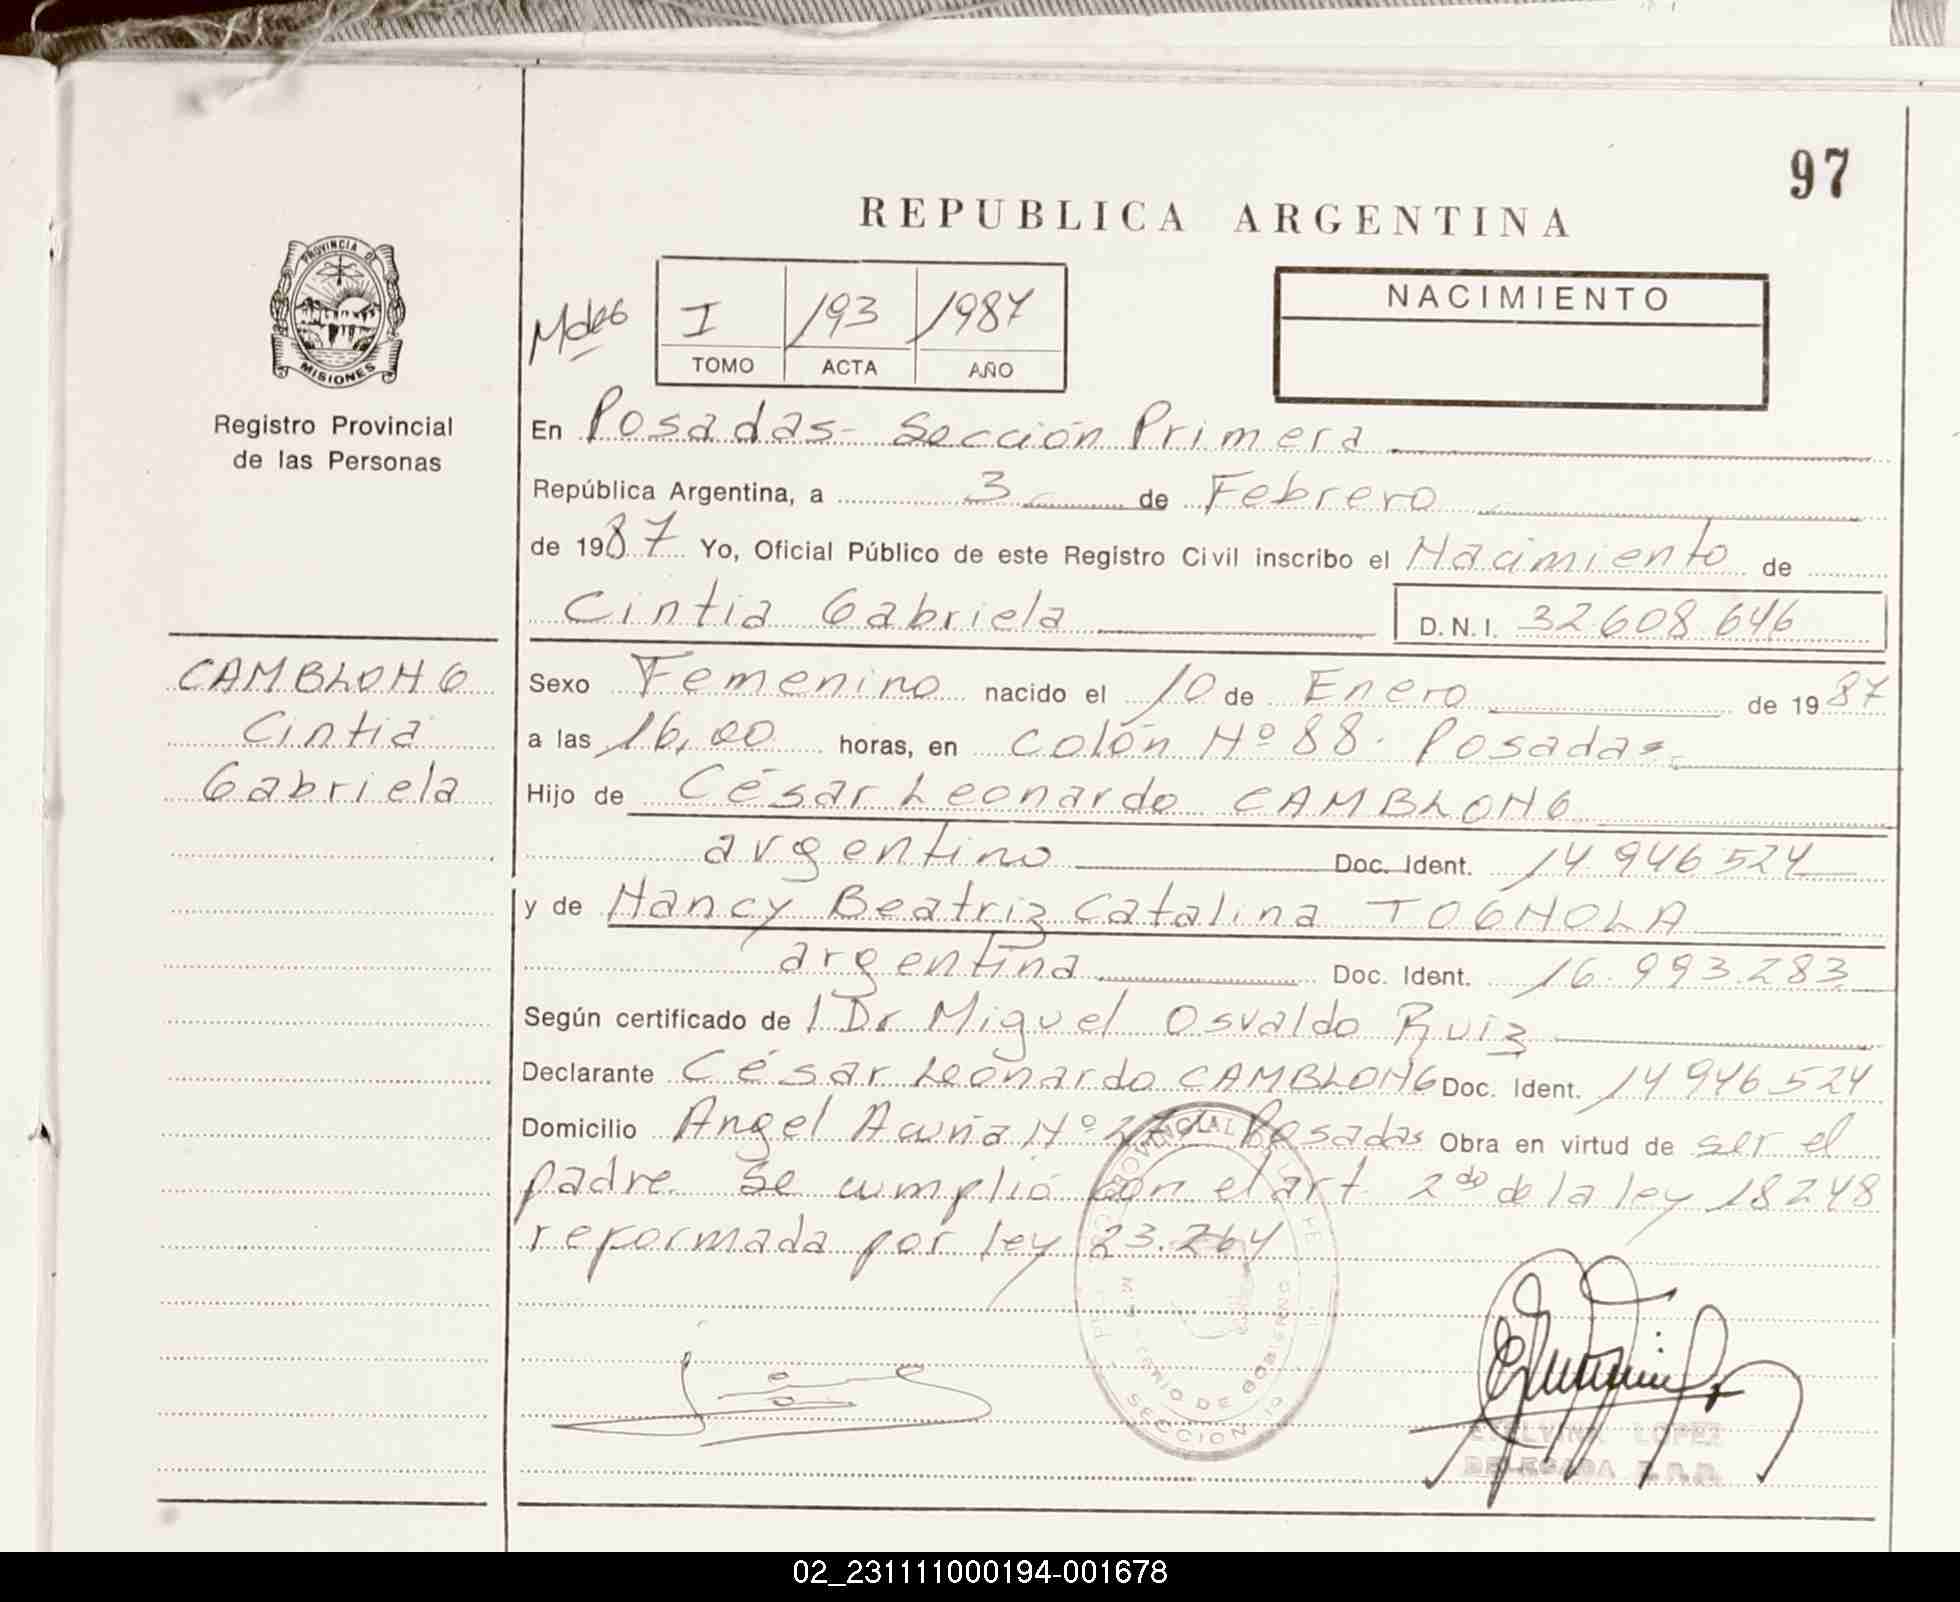 97
REPUBLICA ARGENTINA
PROVINCIA DE
MISIONES
Registro Provincial
de las Personas
I 193 1987
TOMO ACTA AÑO
NACIMIENTO
En Posadas - Sección Primera
República Argentina, a 3 de Febrero
de 1987 Yo, Oficial Público de este Registro Civil inscribo el Nacimiento de
Cintia Gabriela D.N.I. 32608646
CAMBLONG
Cintia
Gabriela
Sexo Femenino nacido el 10 de Enero de 1987
a las 16,00 horas, en Colón Nº 88. Posadas
Hijo de César Leonardo CAMBLONG
argentino Doc. Ident. 14 946 524
y de Nancy Beatriz Catalina TOGNOLA
argentina Doc. Ident. 16.993.283
Según certificado de 1 Dr Miguel Osvaldo Ruiz
Declarante César Leonardo CAMBLONG Doc. Ident. 14 946 524
Domicilio Angel Acuña Nº Posadas Obra en virtud de ser el
padre. Se cumplió con el art. 2do de la ley 18248
reformada por ley 23.264
PROVINCIAL DE
DE GOBIERNO
SECCION 1a
LOPEZ
DELEGADA
02_231111000194-001678